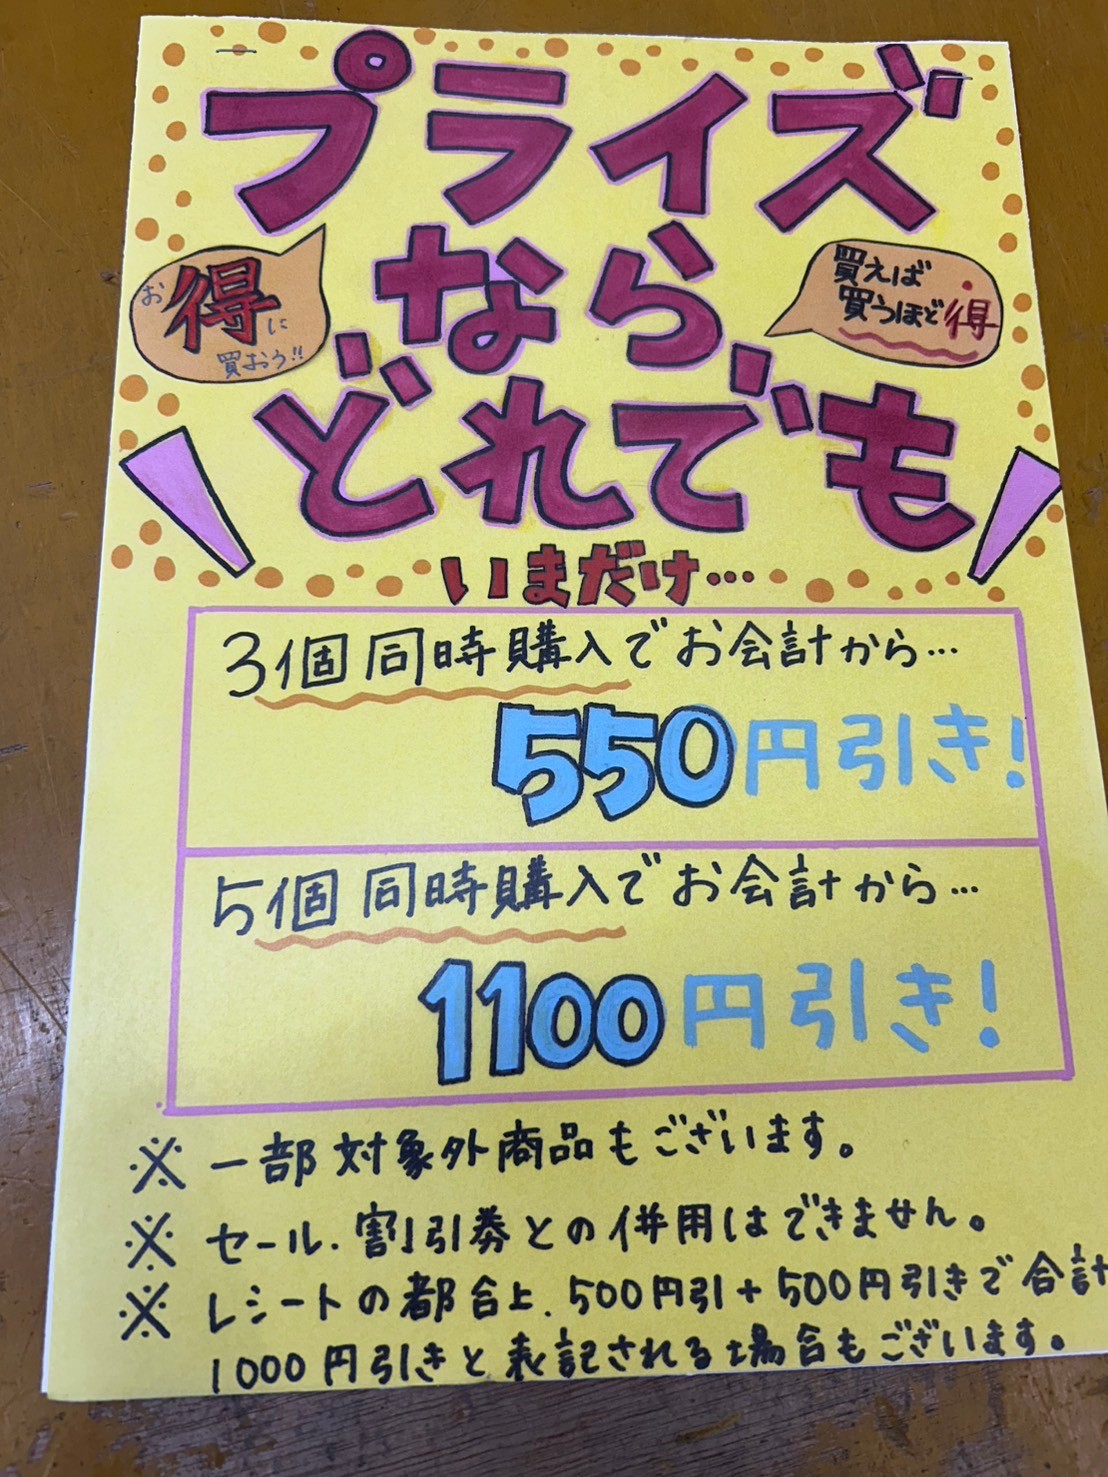 プライズ
なら、
お得に
買おう!!
買えば
買うほど得
どれでも
いまだけ…
3個同時購入でお会計から…
550円引き!
5個同時購入でお会計から…
1100円引き!
※一部対象外商品もございます。
※セール、割引券との併用はできません。
※レシートの都合上、500円引+500円引きで合計
1000円引きと表記される場合もございます。